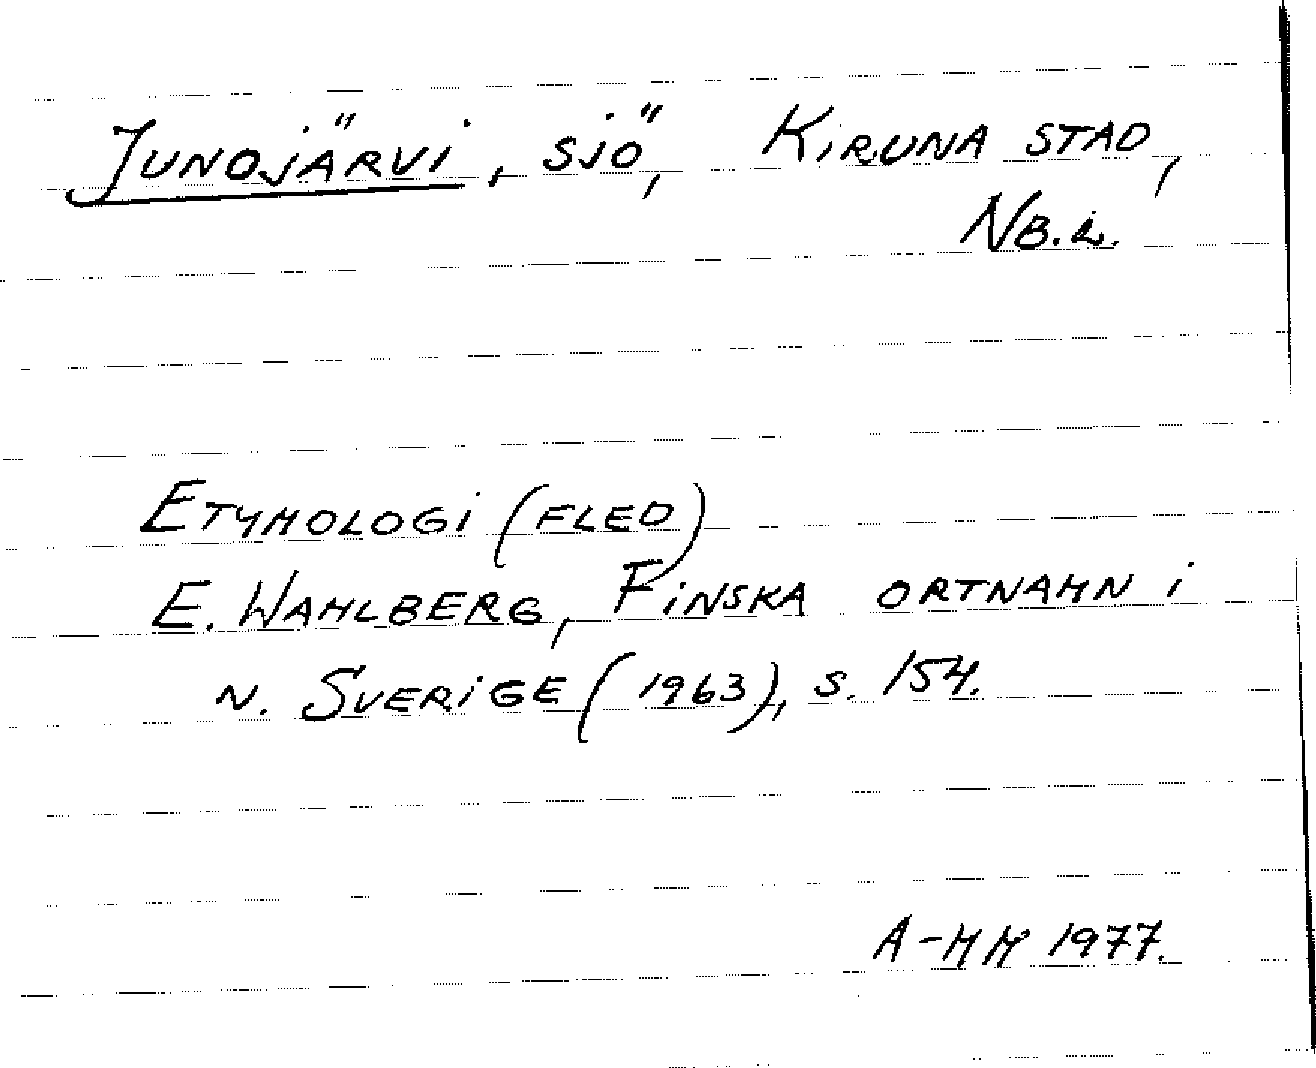 Junojärvi, sjö, Kiruna stad,
Nb.L.
Etymologi (fled)
E. Wahlberg, Finska ortnamn i
n. Sverige (1963), s. 154.
A-MM 1977.